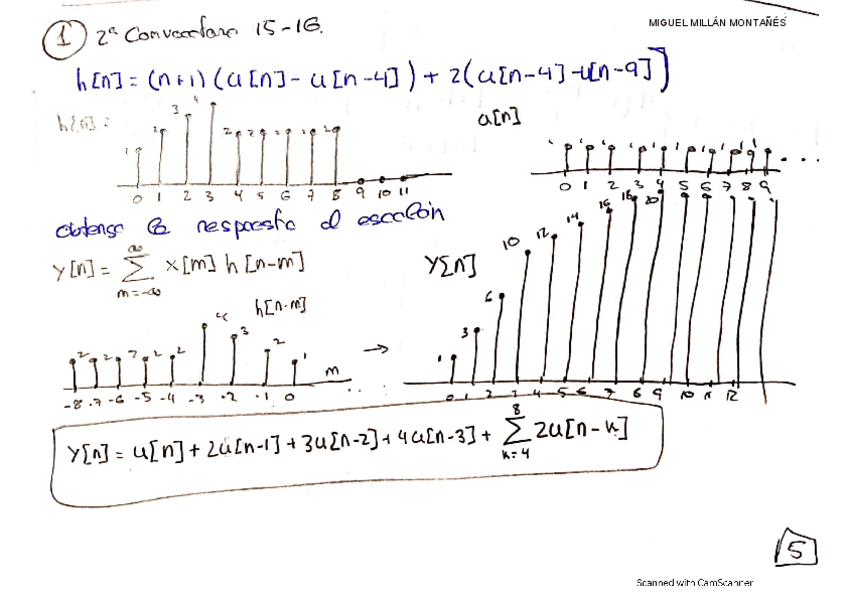 MIGUEL MILLÁN MONTAÑÉS
1 2ª Convocatoria 15-16.
h[n] = (n+1)(u[n] - u[n-4]) + 2(u[n-4] - u[n-9])
h[n] :
1 2 3 4 2 2 2 2 2
0 1 2 3 4 5 6 7 8 9 10 11
u[n]
1 1 1 1 1 1 1 1 1 1 ...
0 1 2 3 4 5 6 7 8 9
obtenga la respuesta al escalón
y[n] = ∞ Σ m=-∞ x[m] h[n-m]
h[n-m]
2 2 2 2 2 4 3 2 1
-8 -7 -6 -5 -4 -3 -2 -1 0 m
→
y[n]
1 3 6 10 12 14 16 18 20
0 1 2 3 4 5 6 7 8 9 10 11 12
y[n] = u[n] + 2u[n-1] + 3u[n-2] + 4u[n-3] + 8 Σ k=4 2u[n-k]
5
Scanned with CamScanner